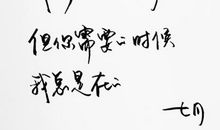 但你需要的时候
我总是在的
七月